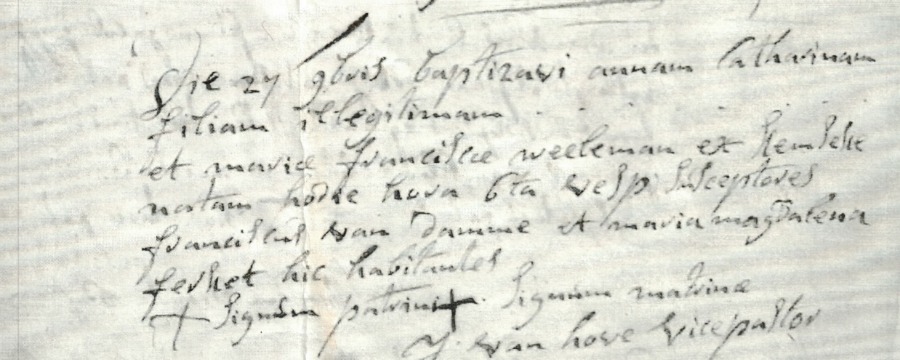 Die 27 9bris baptizavi annam Catharinam
filiam illegitimam . . . .
et mariæ franciscæ weeleman ex
natam hodie hora 6ta vesp: susceptores
franciscus van Damme et maria magdalena
hic habitantes
+ Signum patrini + Signum matrinæ
J. van hove vicepastor